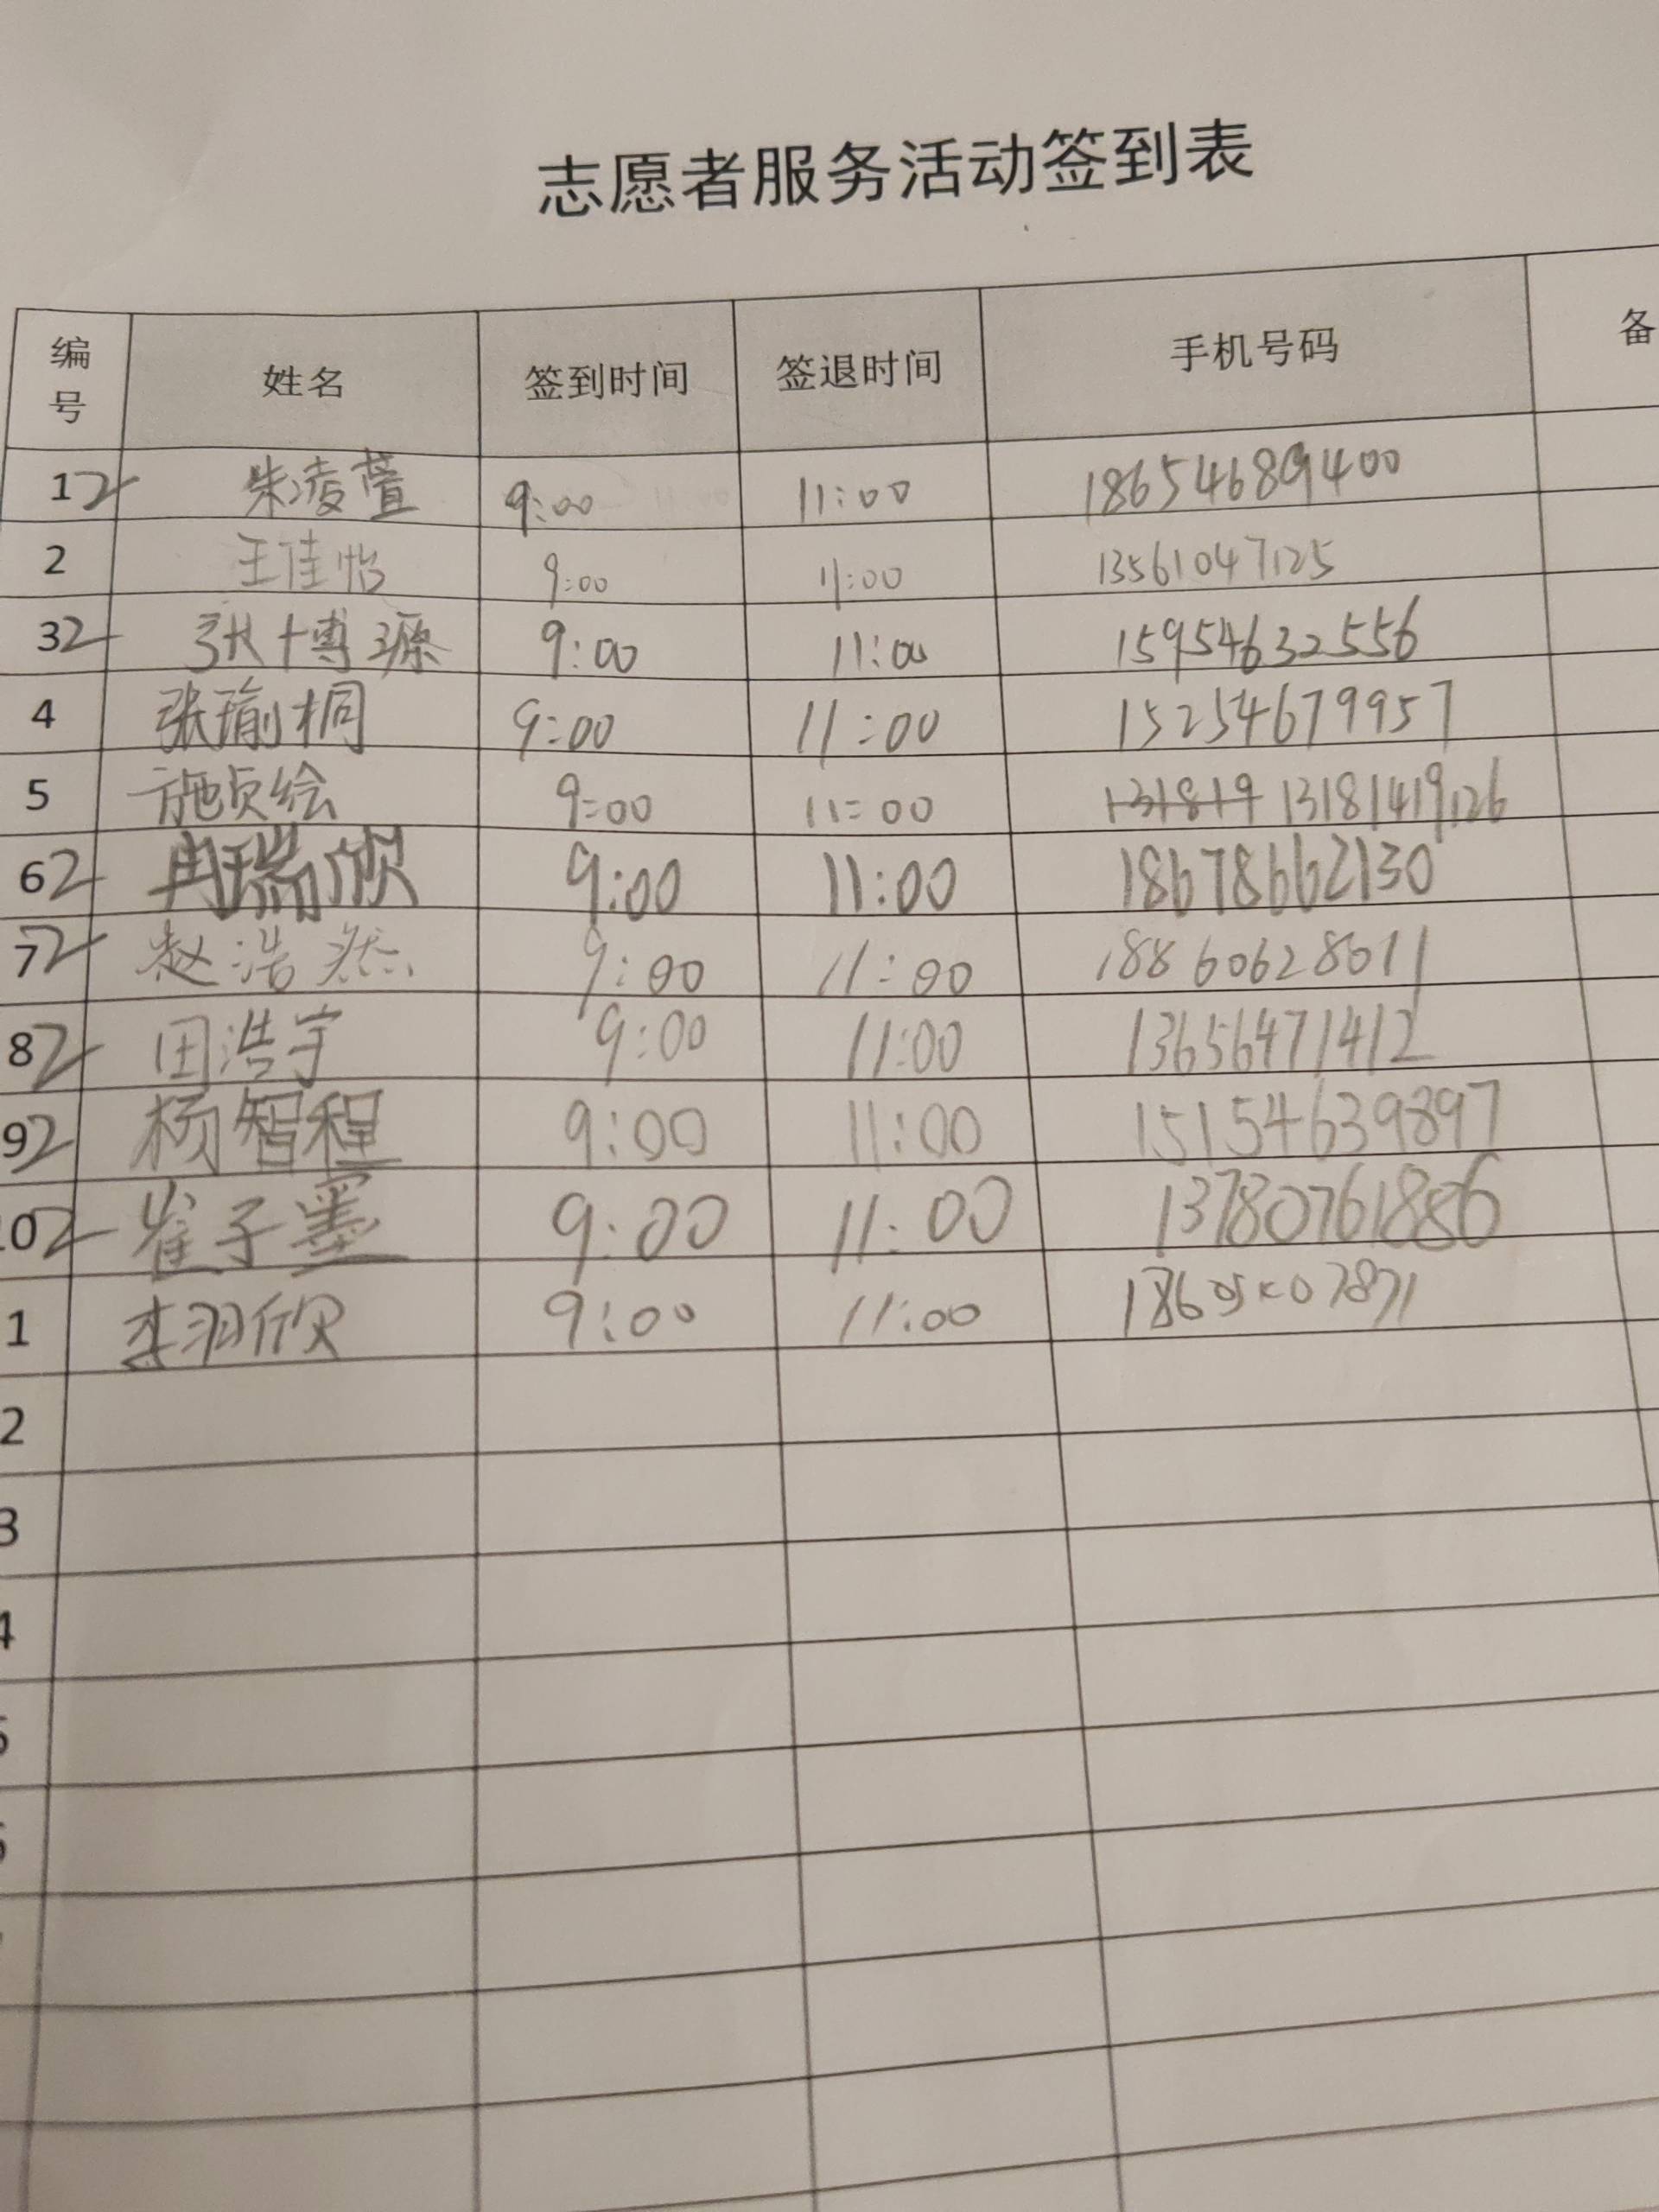 志愿者服务活动签到表
编号 姓名 签到时间 签退时间 手机号码 备
1 2 朱凌萱 9:00 11:00 18654689400
2 王佳怡 9:00 11:00 13561047125
3 2 张博源 9:00 11:00 15954632556
4 张瑜桐 9:00 11:00 15254679957
5 施贞绘 9:00 11:00 131819 13181419126
6 2 冉瑞欣 9:00 11:00 18678662130
7 2 赵浩然 9:00 11:00 18860628011
8 2 田浩宇 9:00 11:00 13656471412
9 2 杨智程 9:00 11:00 15154639897
10 2 崔子墨 9:00 11:00 13780761886
1 李羽欣 9:00 11:00
2
3
4
5
6